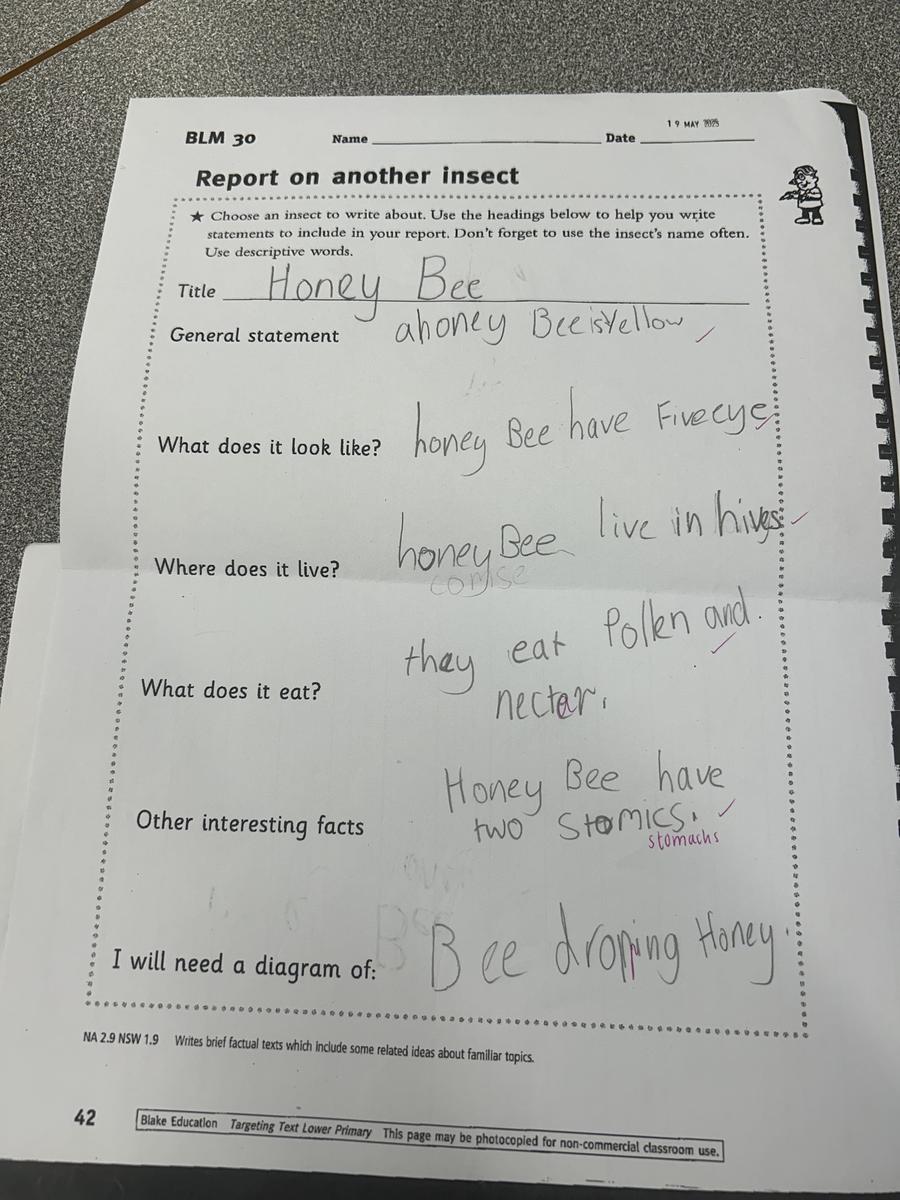 19 MAY 2025
BLM 30 Name Date
Report on another insect
★ Choose an insect to write about. Use the headings below to help you write
statements to include in your report. Don't forget to use the insect's name often.
Use descriptive words.
Title Honey Bee
General statement ahoney Bee is Yellow
What does it look like? honey Bee have Five eye
Where does it live? honey Bee live in hives
they eat Pollen and.
What does it eat? nectar.
Honey Bee have
Other interesting facts two Stomics.
stomachs
I will need a diagram of: Bee droping Honey.
NA 2.9 NSW 1.9 Writes brief factual texts which include some related ideas about familiar topics.
42 Blake Education Targeting Text Lower Primary This page may be photocopied for non-commercial classroom use.